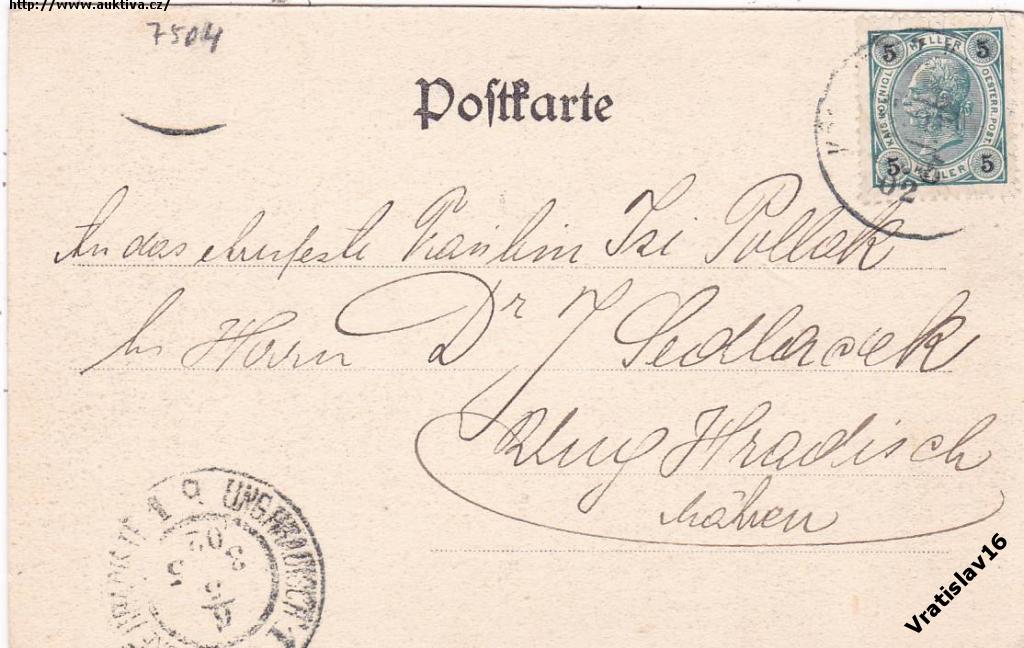 http://www.auktiva.cz/
7504
Postkarte
5 HELLER 5
KAIS. KOENIGL. OESTERR. POST.
5 HELLER 5
02
An das ehrnfeste Fräulein Izi Pollak
bei Herrn Dr J Sedlacek
Ung Hradisch
Mähren
UNG. HRADISCH 1
Vratislav16